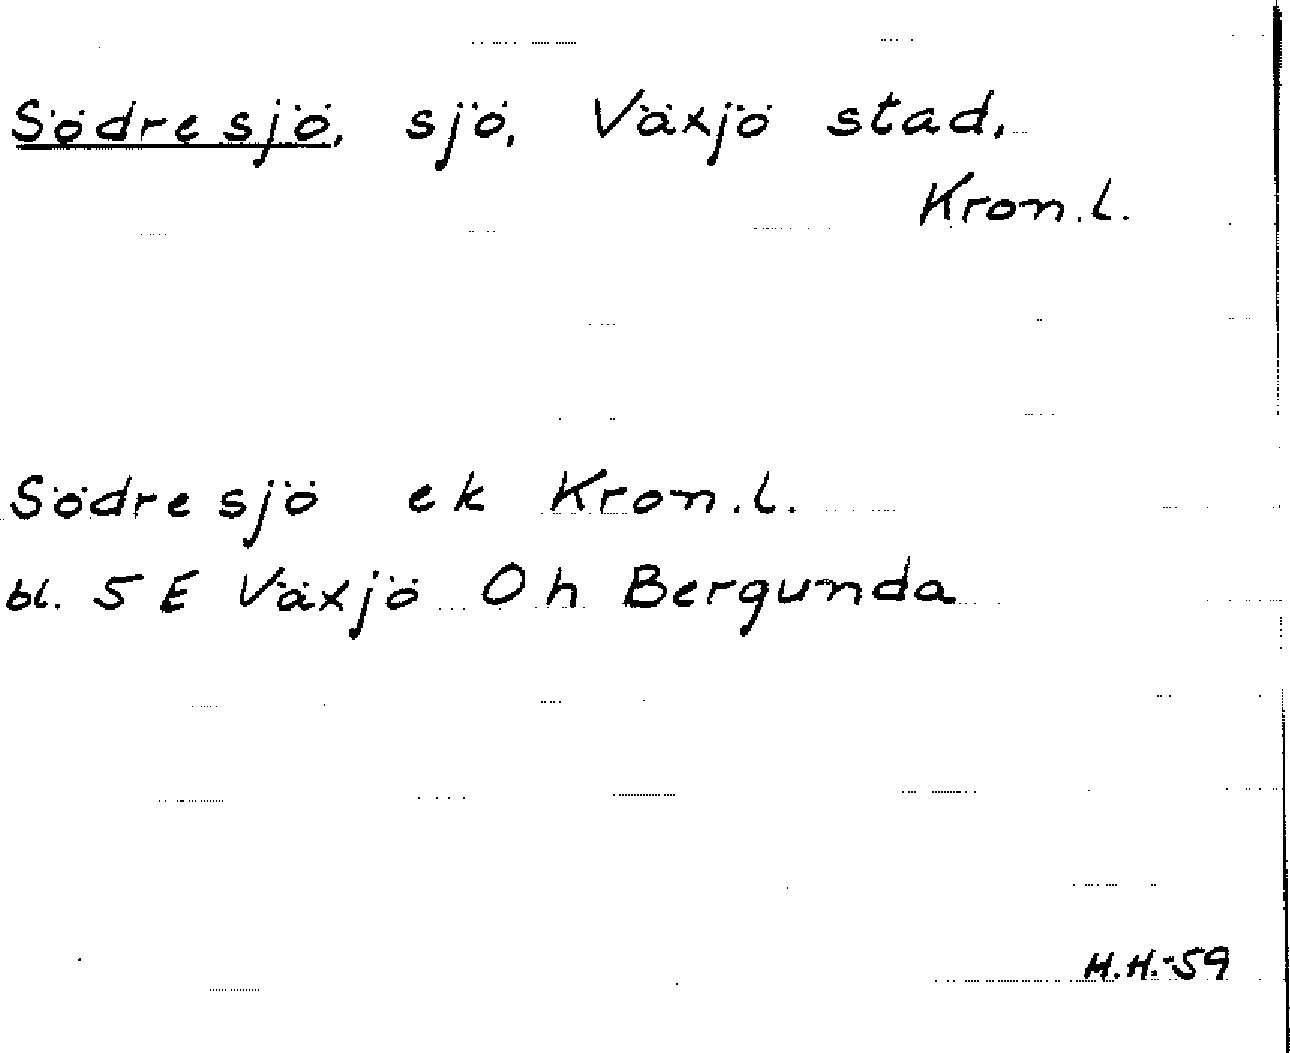 Södresjö, sjö, Växjö stad,
Kron.l.
Södresjö ek Kron.l.
bl. 5 E Växjö Oh Bergunda
H.H.-59